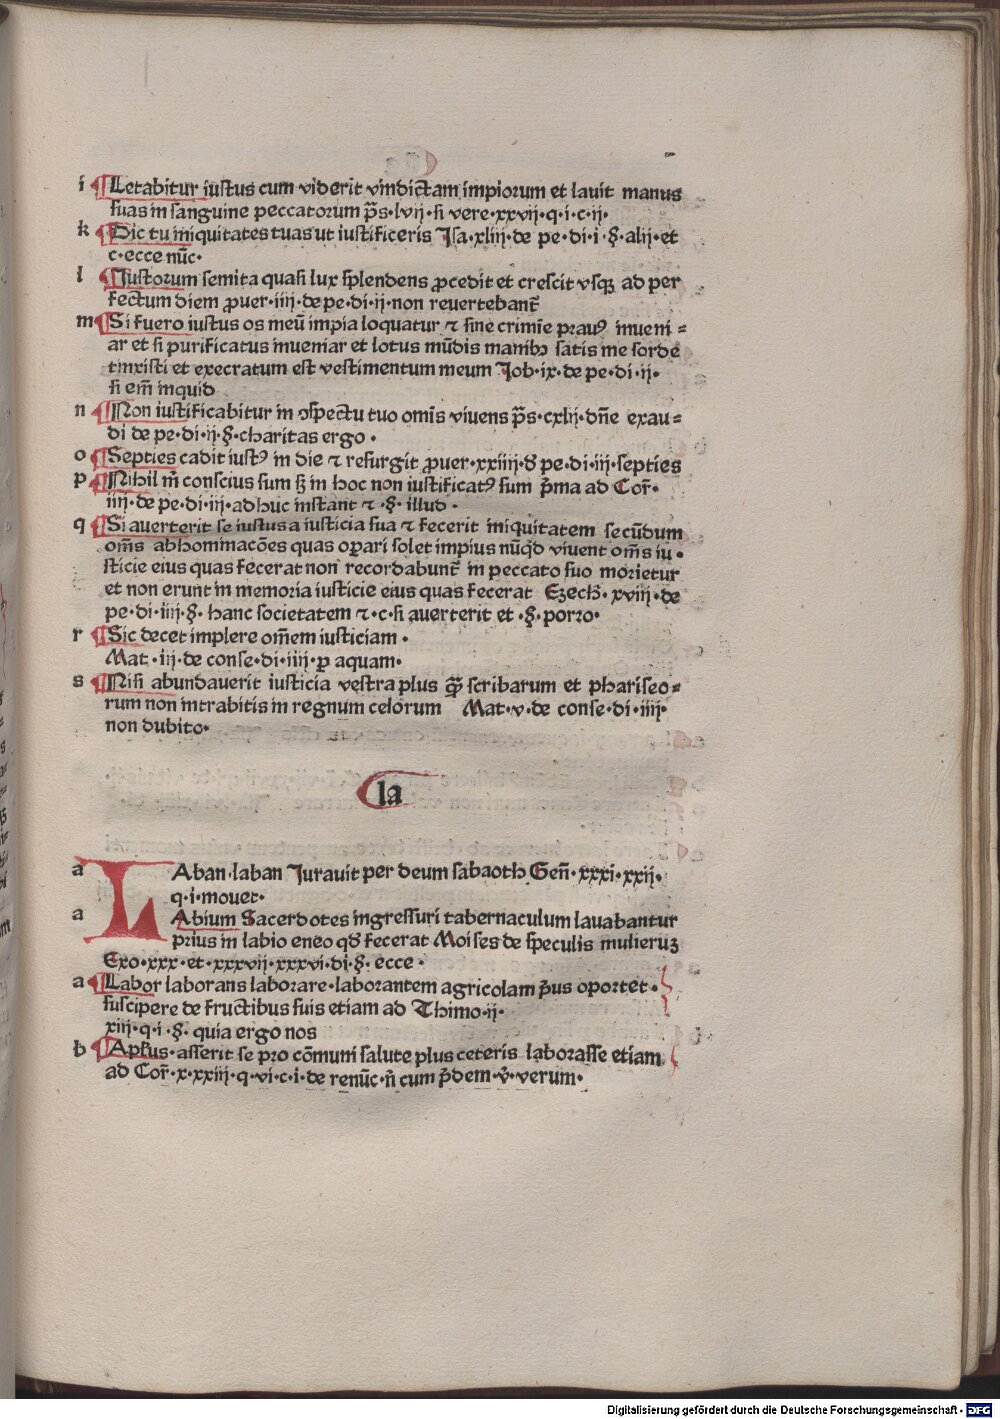 i ¶Letabitur iustus cum viderit vindictam impiorum et lavit manus
suas in sanguine peccatorum p̄s·lvij·si vere·xxvij·q·i·c·ij·
k ¶Dic tu iniquitates tuas ut iustificeris Jsa·xliij·de pe·di·i·§·alij·et
c·ecce nūc·
l ¶Justorum semita quasi lux splendens ꝓcedit et crescit vsqꝫ ad per
fectum diem ꝓuer·iiij·de pe·di·ij·non revertebant̄
m ¶Si fuero iustus os meū impia loquatur ⁊ sine crimīe prauꝰ inueni⸗
ar et si purificatus inueniar et lotus mūdis manibꝫ satis me sorde
tinxisti et execratum est vestimentum meum Job·ix·de pe·di·ij·
si em̄ inquid
n ¶Non iustificabitur in ꝯspectu tuo omīs viuens p̄s·cxlij·dn̄e exau⸗
di de pe·di·ij·§·charitas ergo·
o ¶Septies cadit iustꝰ in die ⁊ resurgit ꝓuer·xxiiij·d̄ pe·di·iij·septies
p ¶Nihil m̄ conscius sum sꝫ in hoc non iustificatꝰ sum p̄ma ad Cor̄·
iiij·de pe·di·iij·adhuc instant ⁊·§·illud·
q ¶Si auerterit se iustus a iusticia sua ⁊ fecerit iniquitatem secūdum
om̄s abhominacōes quas oꝑari solet impius nūqd̄ viuent om̄s iu·
sticie eius quas fecerat non recordabunt̄ in peccato suo morietur
et non erunt in memoria iusticie eius quas fecerat Ezech·xviij·de
pe·di·iiij·§·hanc societatem ⁊·c·si averterit et·§·porro·
r ¶Sic decet implere om̄em iusticiam·
Mat·iij·de conse·di·iiij·ꝑ aquam·
s ¶Nisi abundauerit iusticia vestra plus qꝫ̄ scribarum et phariseo⸗
rum non intrabitis in regnum celorum Mat·v·de conse·di·iiij·
non dubito·
¶la
a LAban·laban Jurauit per deum sabaoth Gen̄·xxxi·xxij·
q·i·mouet·
a LAbium Sacerdotes ingressuri tabernaculum lauabantur
prius in labio eneo qd̄ fecerat Moises de speculis mulieruꝫ
Exo·xxx·et·xxxvij·xxxvi·di·§·ecce·
a ¶Labor laborans laborare·laborantem agricolam p̄us oportet·
suscipere de fructibus suis etiam ad Thimo·ij·
xiij·q·i·§·quia ergo nos
b ¶Apl̄us·asserit se pro cōmuni salute plus ceteris laborasse etiam
ad Cor̄·x·xxiij·q·vi·c·i·de renūc·n̄ cum p̄dem·v̄·verum·
Digitalisierung gefördert durch die Deutsche Forschungsgemeinschaft - DFG